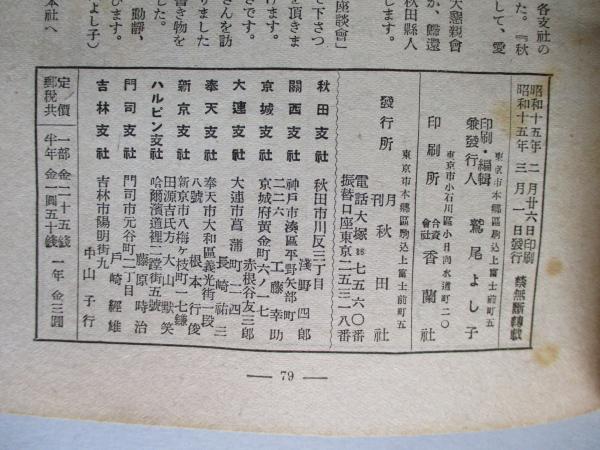 各支社の
た。『秋
して、愛
大懇親會
か、歸還
秋田縣人
します。
座談會」
で下さつ
を頂きま
けます。
さんを訪
りました
書き物を
した。
、動靜、
びます。
よし子）
本社へ
昭和十五年 二月廿六日印刷
昭和十五年 三月一日發行
禁無斷轉載
東京市本郷區駒込上富士前町五
印刷・編輯
兼發行人 鷲尾よし子
東京市小石川區小日向水道町二〇
印刷所 合資會社 香蘭社
東京市本郷區駒込上富士前町五
發行所 月刊秋田社
電話大塚(86)七五六〇番
振替口座東京二五三一八番
秋田支社 秋田市川反三丁目
淺野四郎
關西支社 神戸市湊區平野矢部町
二二六 工藤幸助
京城支社 京城府黄金町六ノ一七
赤根谷友三郎
大連支社 大連市菖蒲町二一四
長崎祐三
奉天支社 奉天市大和區義光街一段
八號 根本行俊
新京支社 新京市八梅ヶ枝町一七鎌
田源吉氏方 大山默笑
ハルピン支社 哈爾濱道裡三蹚街五號
藤原時治
門司支社 門司市元谷町一丁目
戸崎經雄
吉林支社 吉林市陽明街九
中山子行
定價 一部金二十五錢 一年金三圓
郵税共 半年金一圓五十錢
— 79 —